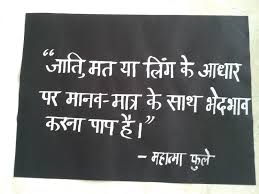 “जाति, मत या लिंग के आधार
पर मानव-मात्र के साथ भेदभाव
करना पाप है।”
- महात्मा फुले